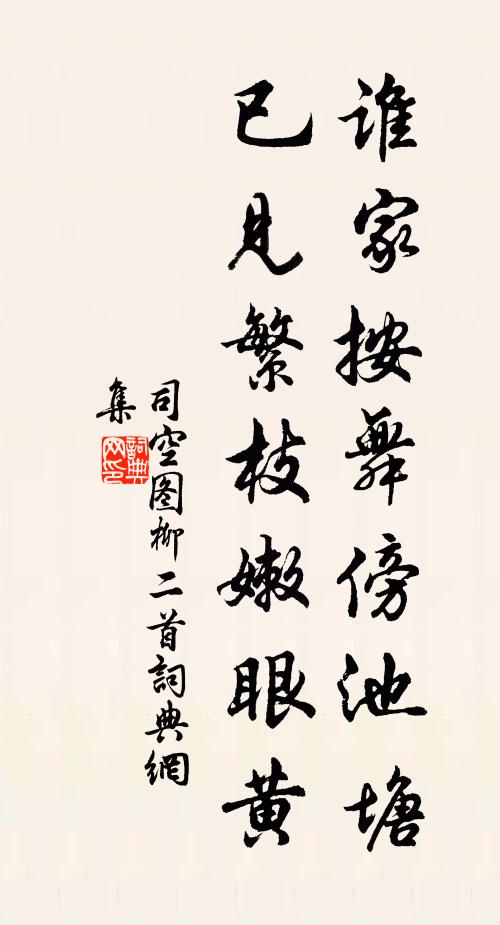 谁家按舞傍池塘
已见繁枝嫩眼黄
司空图柳二首詞典網
集
詞典
网印